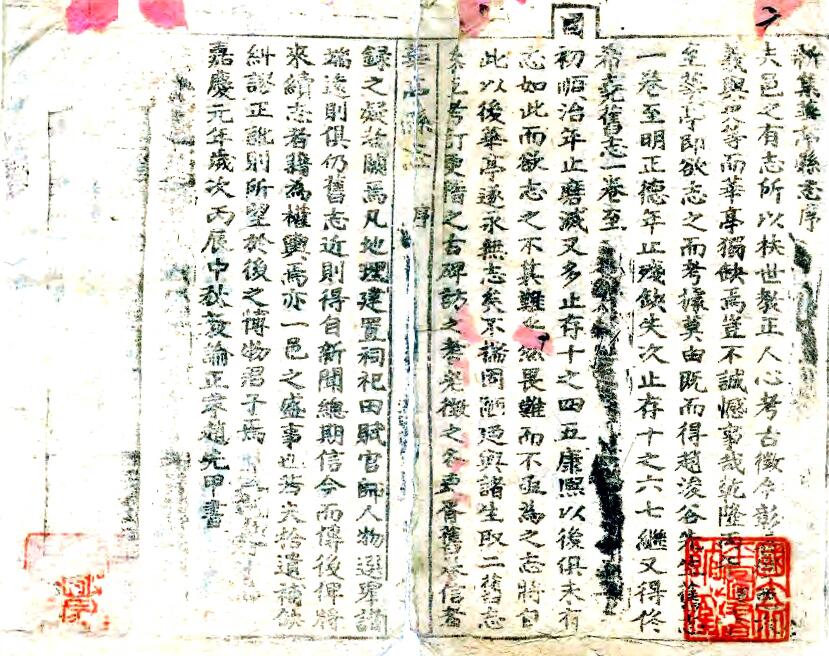 新集華亭縣志序
夫邑之有志所以扶世教正人心考古徵今彰
義與史等而華亭獨缺焉豈不誠憾事哉乾隆
至華亭即欲志之而考據莫由既而得趙浚谷先生舊志
一卷至明正德年止殘缺失次止存十之六七繼又得佟
希堯舊志一卷至
國
初順治年止磨滅又多止存十之四五康熙以後俱未有
志如此而欲志之不其難乎然畏難而不亟為之志將自
此以後華亭遂永無志矣不揣固陋遂與諸生取二舊志
考訂更階之古碑訪之耆老徵之各要胥舊承信者
華亭縣志
序
錄之疑者闕焉凡地理建置祠祀田賦官師人物選舉諸
端遠則俱仍舊志近則得自新聞總期信今而傳後俾將
來續志者藉為權輿焉亦一邑之盛事也若夫拾遺補缺
糾謬正訛則所望於後之博物君子焉
嘉慶元年歲次丙辰中秋教諭正寧趙先甲書